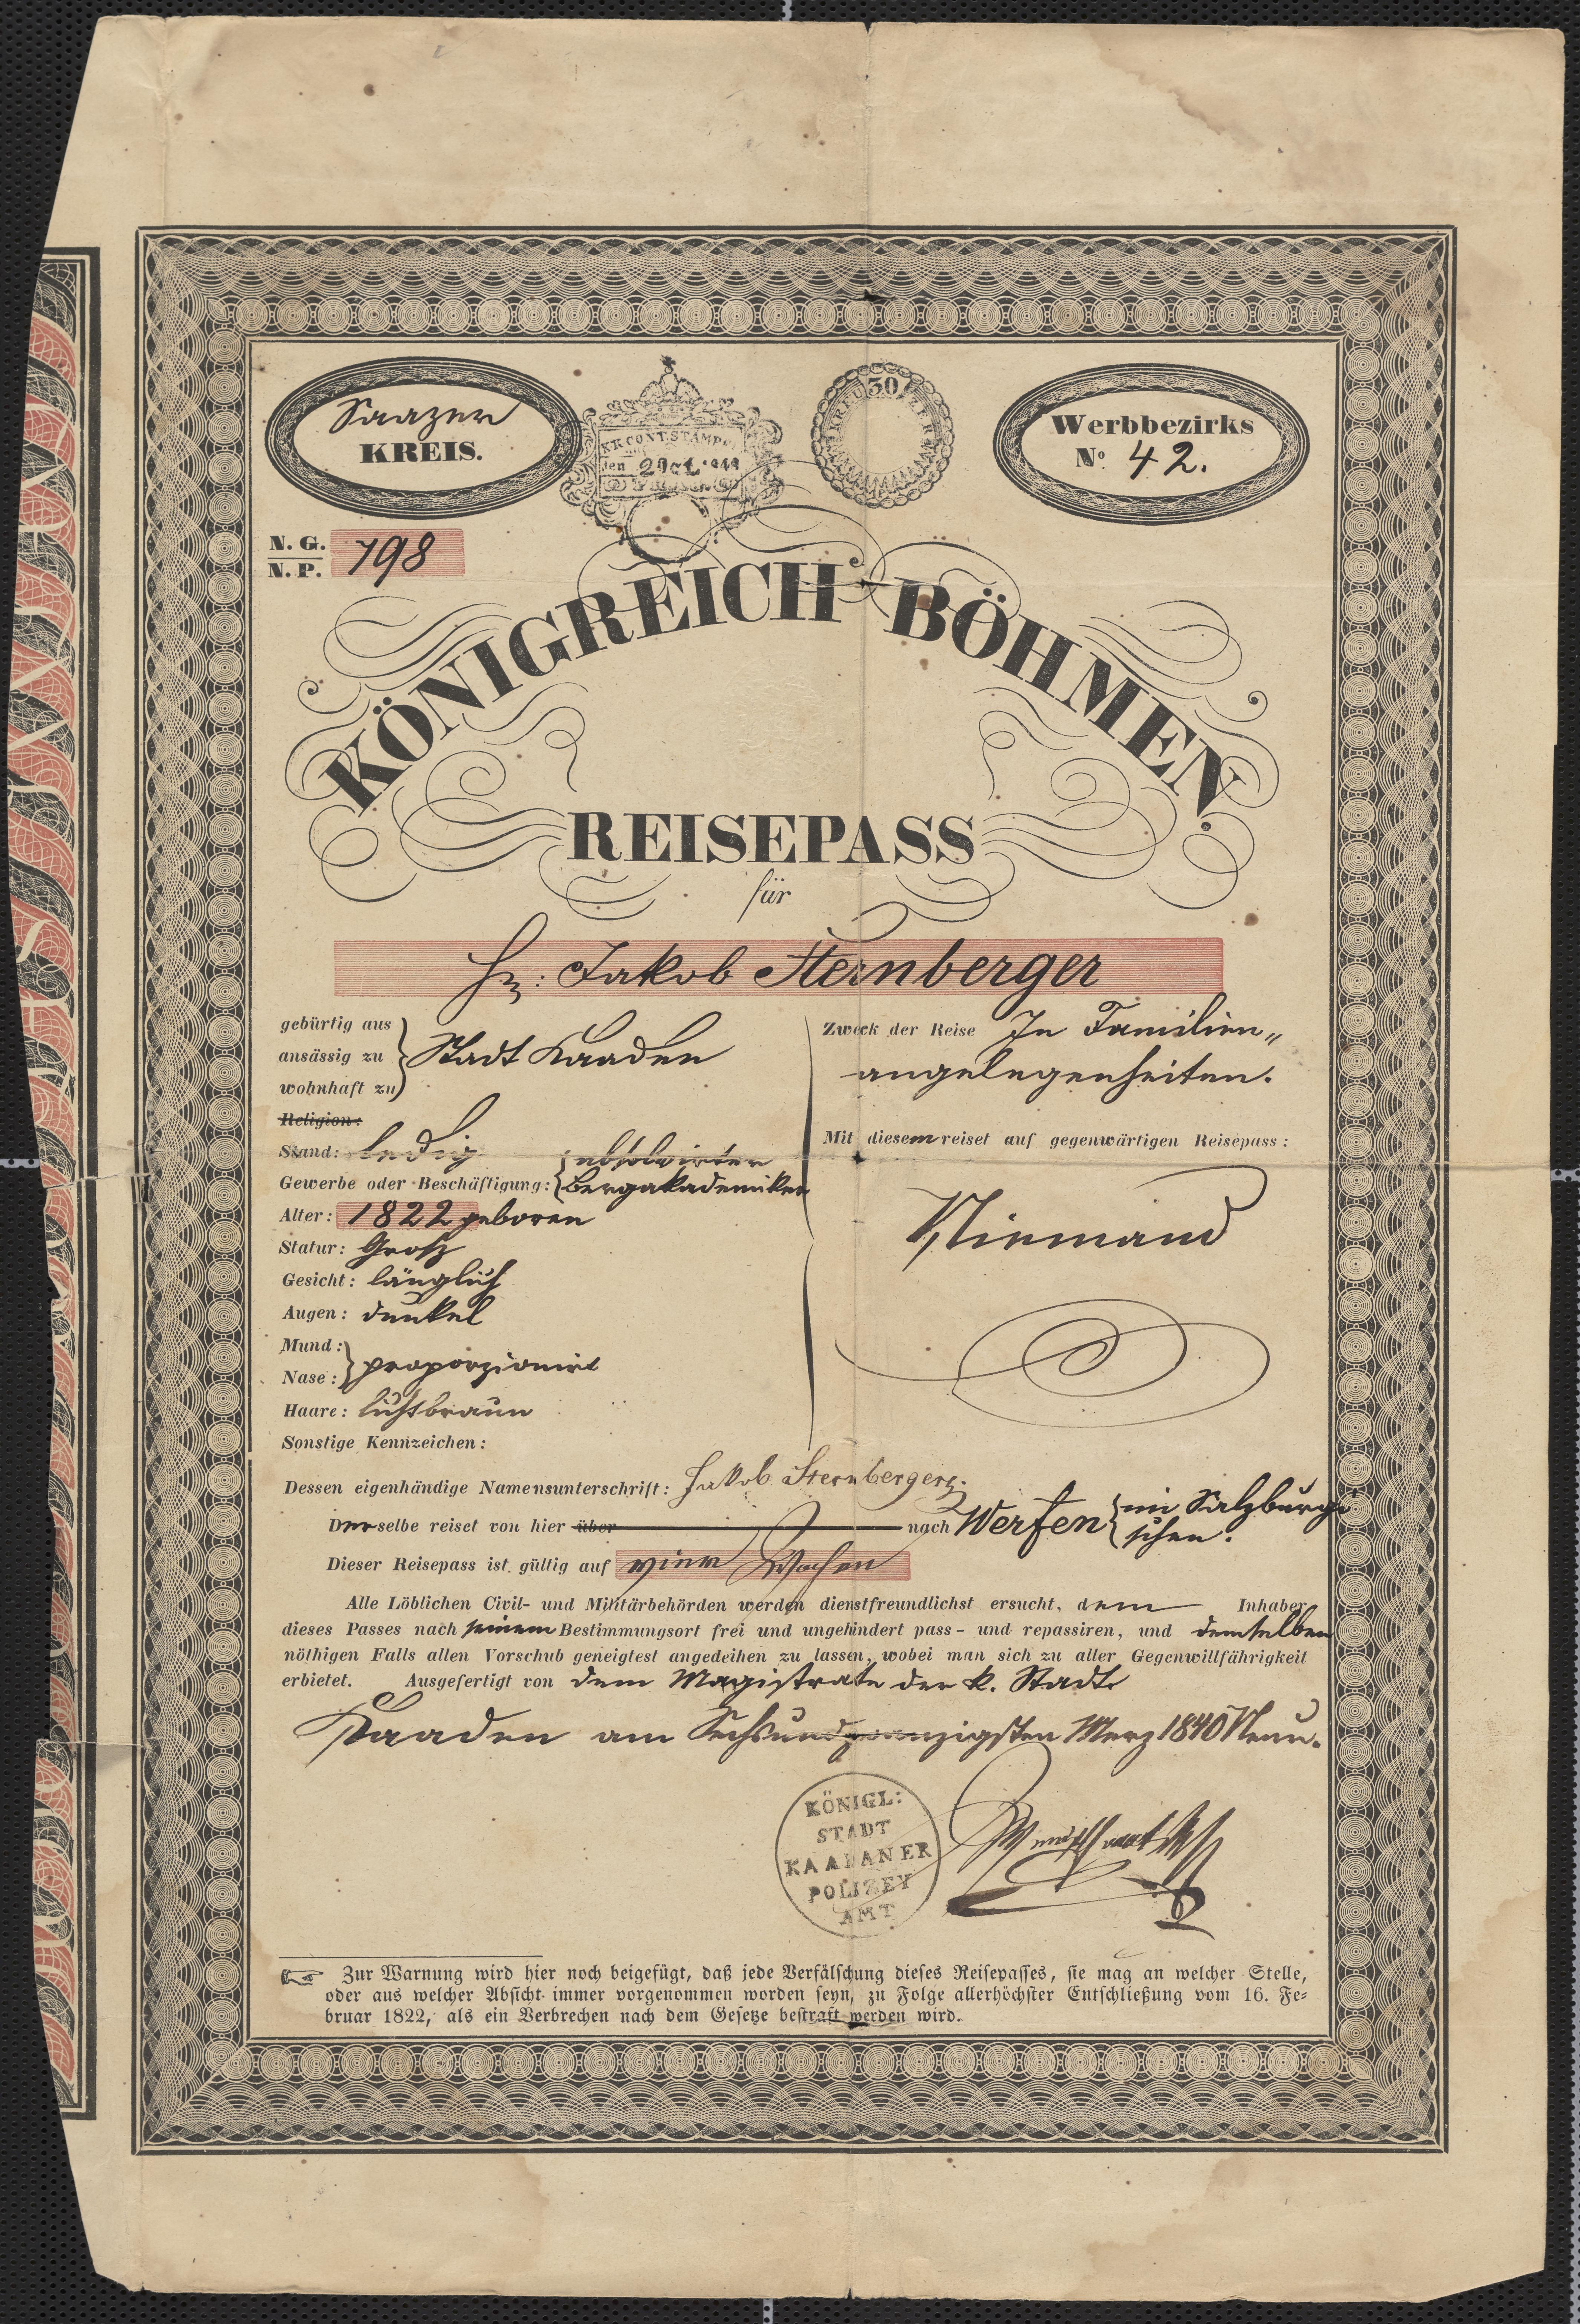 Saazer
KREIS.
K.K. CONT. STÄMPO.
den 29 Oct.
30
Werbbezirks
No. 42.
N. G.
N. P. 798
KÖNIGREICH BÖHMEN.
REISEPASS
für
Hr: Jakob Sternberger
gebürtig aus
ansässig zu
wohnhaft zu
Stadt Kaaden
Religion:
Stand: ledig
Gewerbe oder Beschäftigung: absolvirter
Bergakademiker
Alter: 1822 geboren
Statur: Groß
Gesicht: länglich
Augen: dunkel
Mund:
Nase: proporzionirt
Haare: lichtbraun
Sonstige Kennzeichen:
Zweck der Reise In Familien„
angelegenheiten.
Mit diesem reiset auf gegenwärtigen Reisepass:
Niemand
Dessen eigenhändige Namensunterschrift: Jakob Sternberger
Derselbe reiset von hier über nach Werfen im Salzburgi
schen.
Dieser Reisepass ist gültig auf vier Wochen
Alle Löblichen Civil- und Militärbehörden werden dienstfreundlichst ersucht, dem Inhaber
dieses Passes nach seinem Bestimmungsort frei und ungehindert pass- und repassiren, und demselben
nöthigen Falls allen Vorschub geneigtest angedeihen zu lassen, wobei man sich zu aller Gegenwillfährigkeit
erbietet. Ausgefertigt von dem Magistrate der k. Stadt
Kaaden am Sechsundzwanzigsten Merz 1840 Neun.
KÖNIGL:
STADT
KAADANER
POLIZEY
AMT
Zur Warnung wird hier noch beigefügt, daß jede Verfälschung dieses Reisepasses, sie mag an welcher Stelle,
oder aus welcher Absicht immer vorgenommen worden seyn, zu Folge allerhöchster Entschließung vom 16. Fe-
bruar 1822, als ein Verbrechen nach dem Gesetze bestraft werden wird.